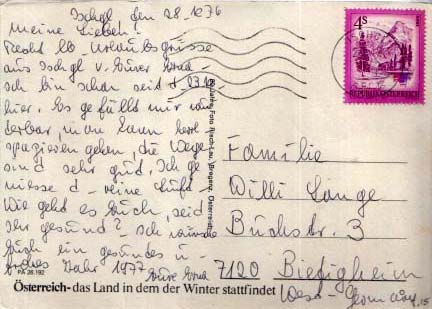 Ischgl den 28.12.76
Meine Lieben!
Recht lb. Urlaubsgrüsse
aus Ischgl v. Eurer
Ich bin schon seit d. 23.12.
hier. Es gefällt mir wun
derbar, man kann herrl.
spazieren gehen, die Wege
sind sehr gut. Ich ge
niesse d. reine Luft.
Wie geht es Euch, seid
Ihr gesund? Ich wünsche
Euch ein gesundes u.
frohes Jahr 1977 Eure
PA 28.192
Österreich - das Land in dem der Winter stattfindet
Foto Risch-Lau, Bregenz, Österreich
4 S
REPUBLIK ÖSTERREICH
Familie
Willi Lange
Buchstr. 3
7120 Bietigheim
West-Germany